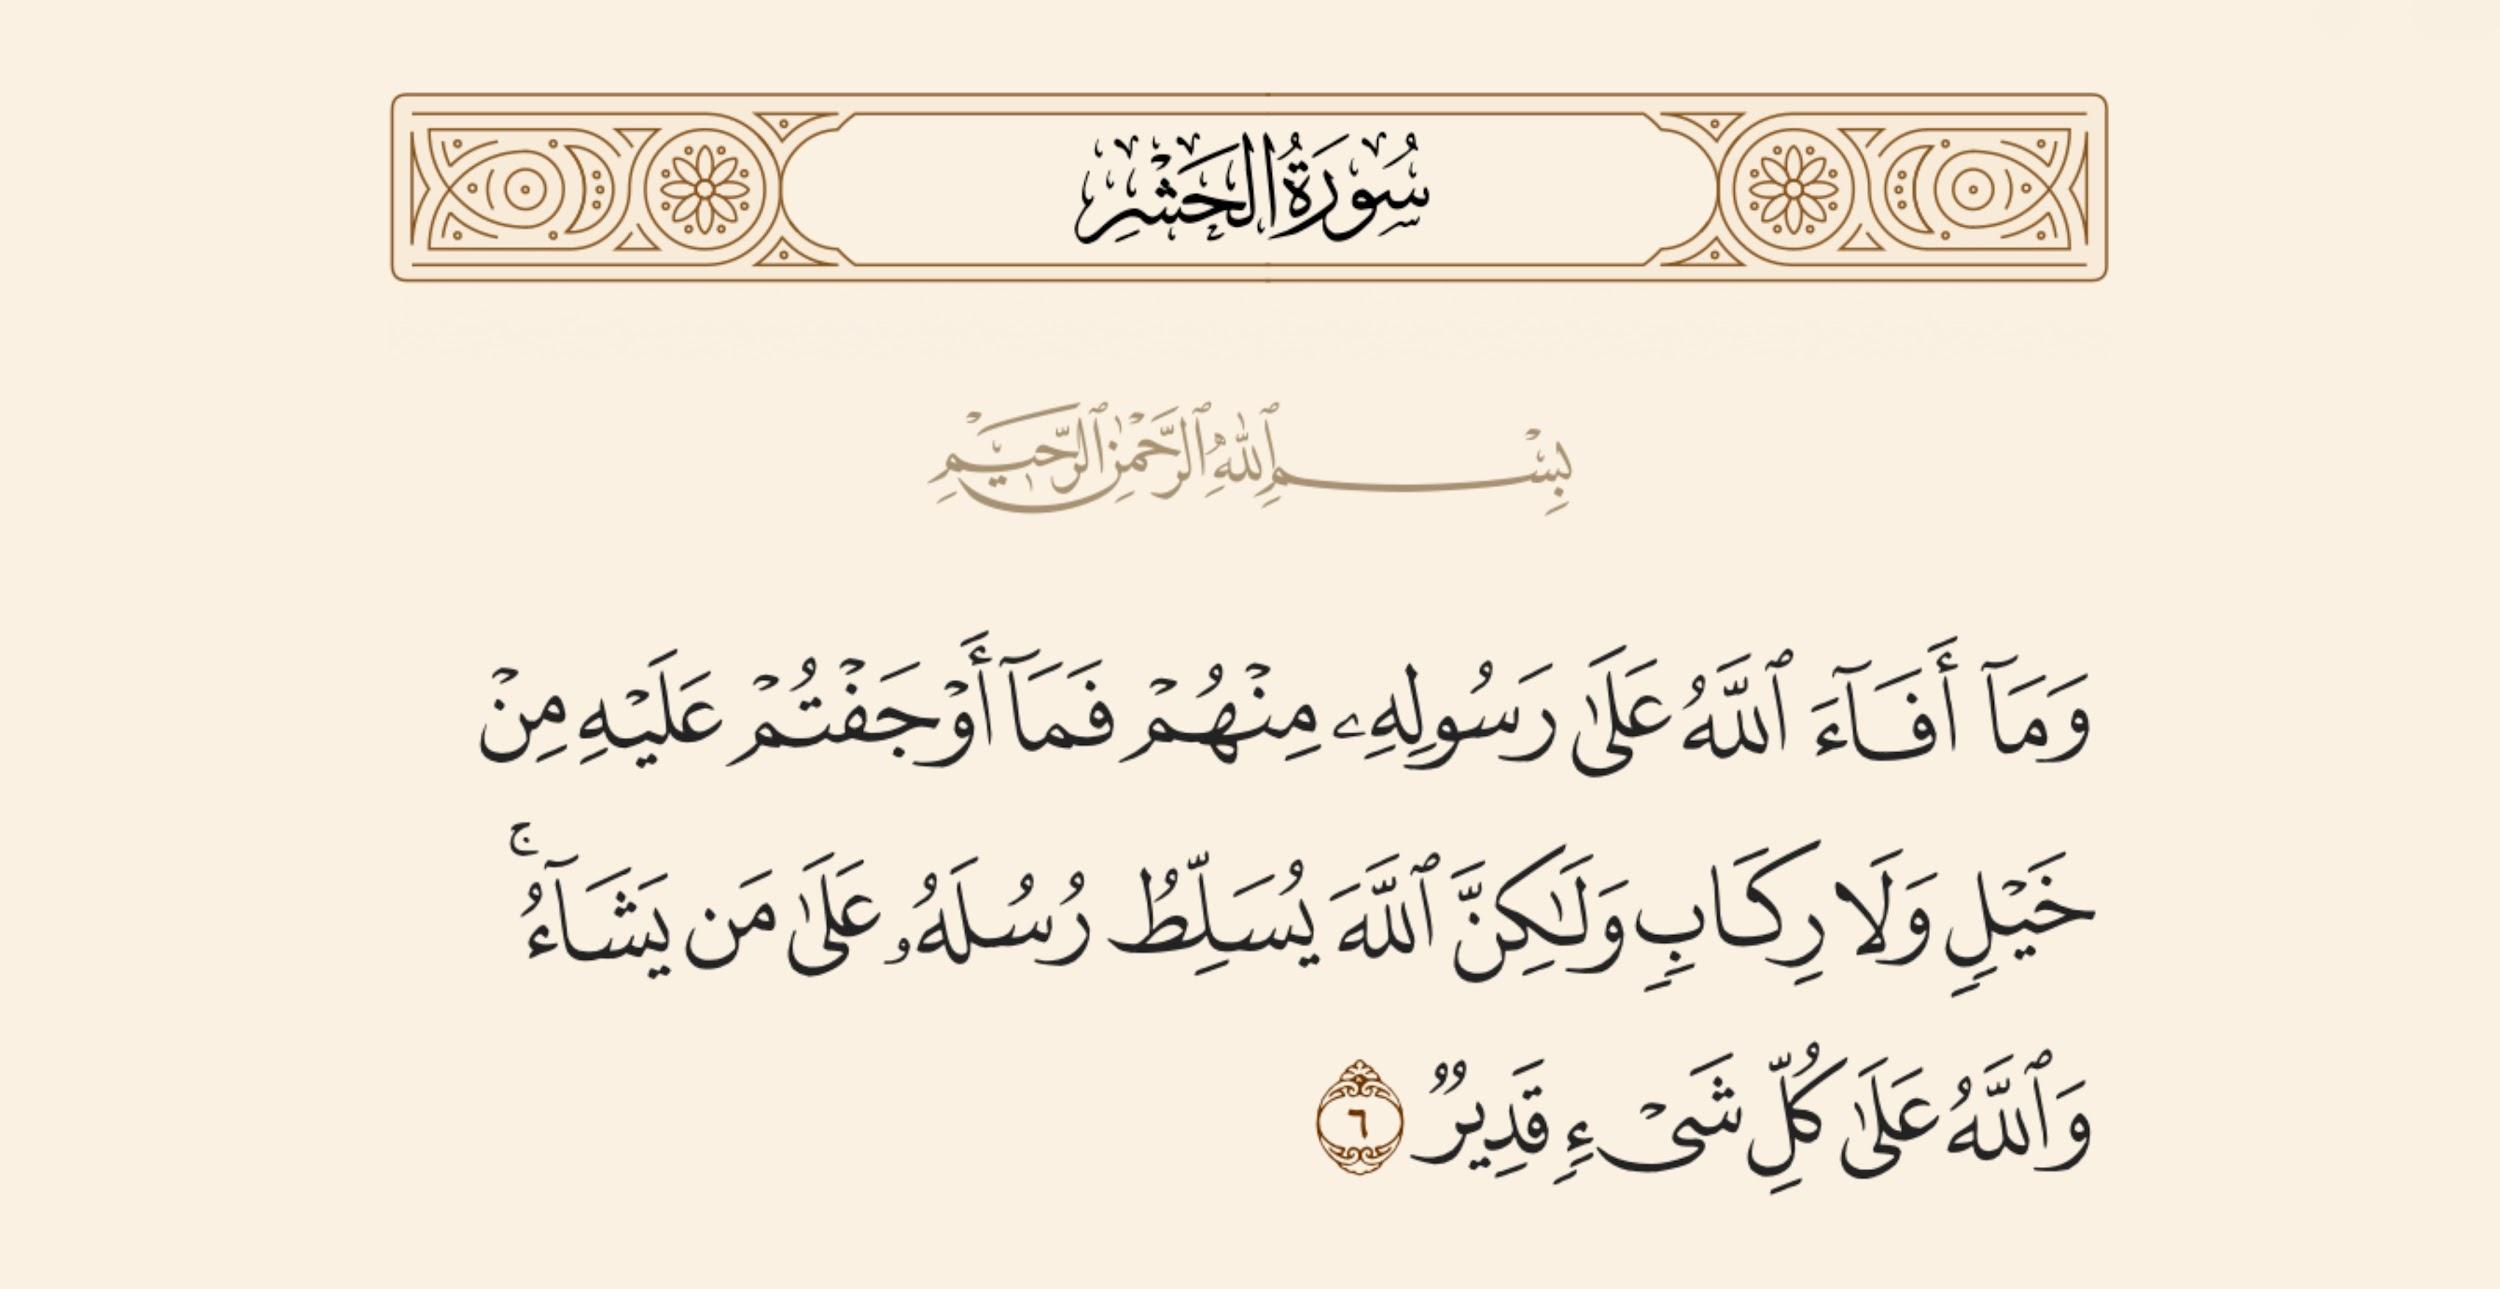 سُورَةُ الحَشْرِ
بِسْمِ ٱللَّهِ ٱلرَّحْمَٰنِ ٱلرَّحِيمِ
وَمَآ أَفَآءَ ٱللَّهُ عَلَىٰ رَسُولِهِۦ مِنْهُمْ فَمَآ أَوْجَفْتُمْ عَلَيْهِ مِنْ
خَيْلٍ وَلَا رِكَابٍ وَلَٰكِنَّ ٱللَّهَ يُسَلِّطُ رُسُلَهُۥ عَلَىٰ مَن يَشَآءُ ۚ
وَٱللَّهُ عَلَىٰ كُلِّ شَىْءٍ قَدِيرٌ ٦